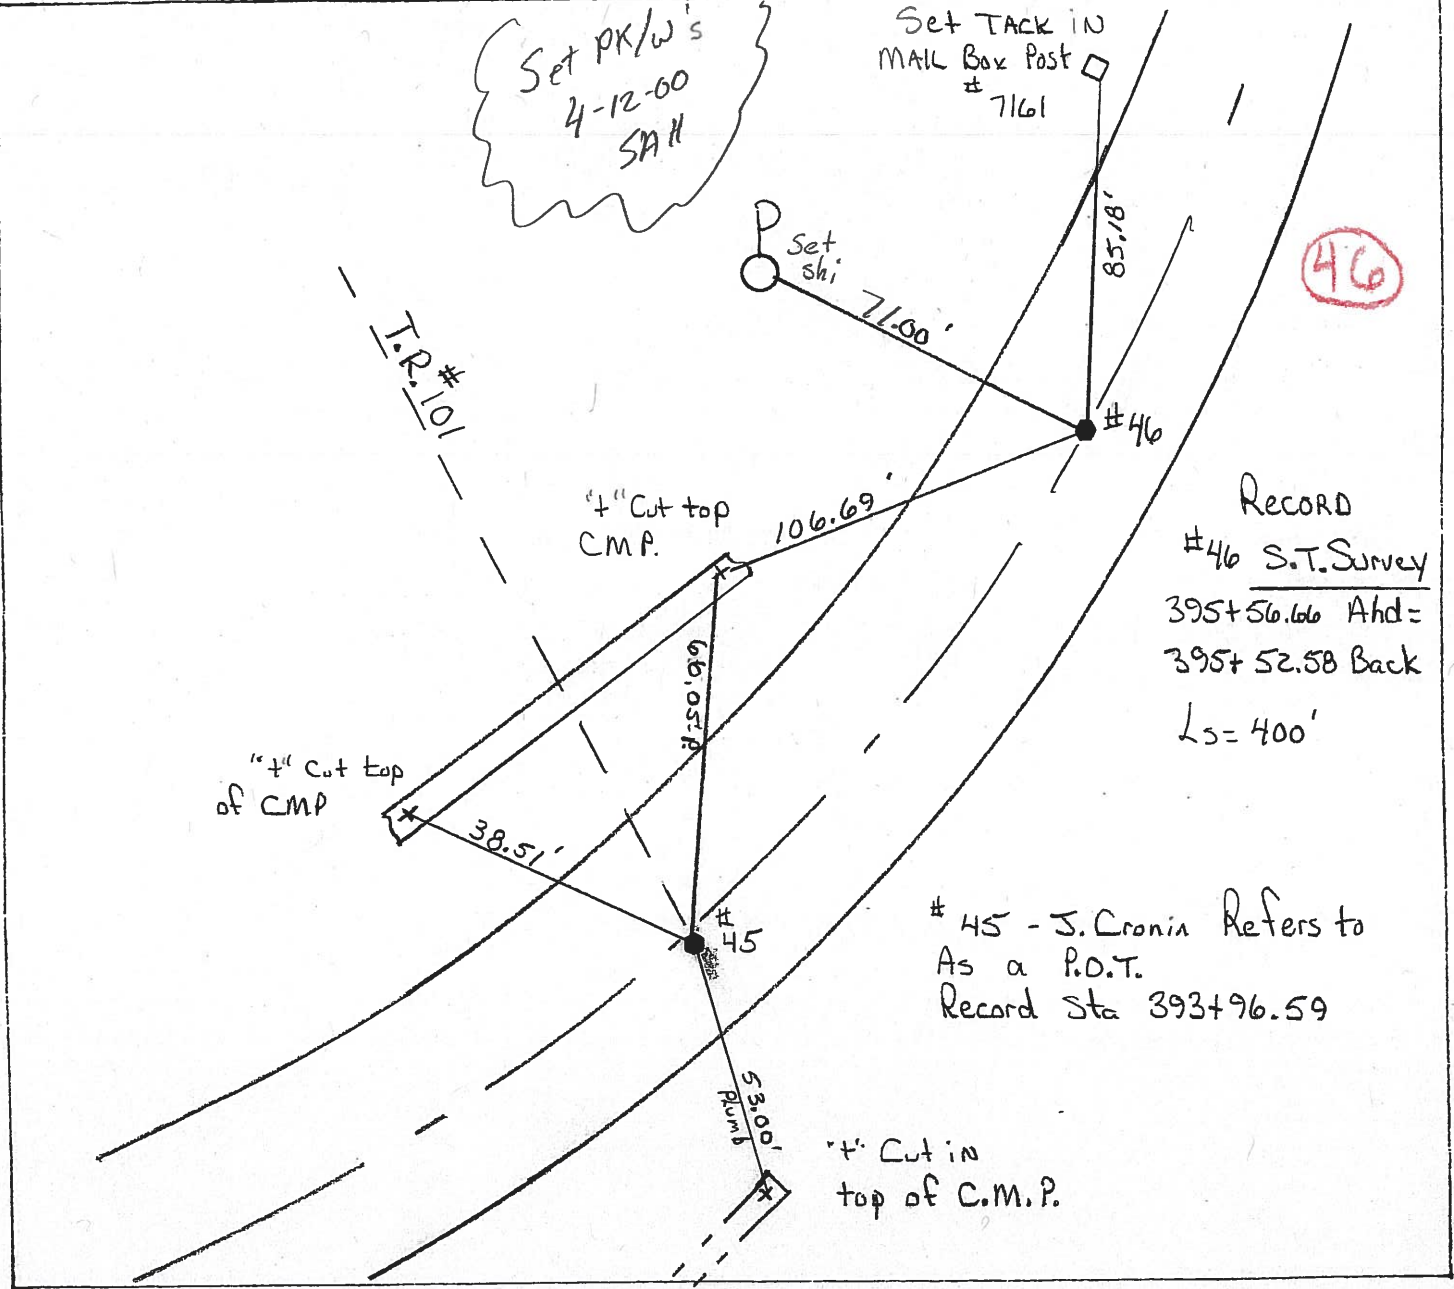 Set PK/W's
4-12-00
SAH
Set TACK iN
MAIL Box Post
# 7161
85.18'
46
P
Set
shi
71.00'
T.R.#101
#46
"t" Cut top
C.M.P.
106.69'
RECORD
#46 S.T. Survey
395+56.66 Ahd =
395+52.58 Back
Ls = 400'
"t" Cut top
of CMP
38.51'
#45
# 45 - J. Cronin Refers to
As a P.O.T.
Record Sta 393+96.59
53.00'
Plumb
"t" Cut iN
top of C.M.P.